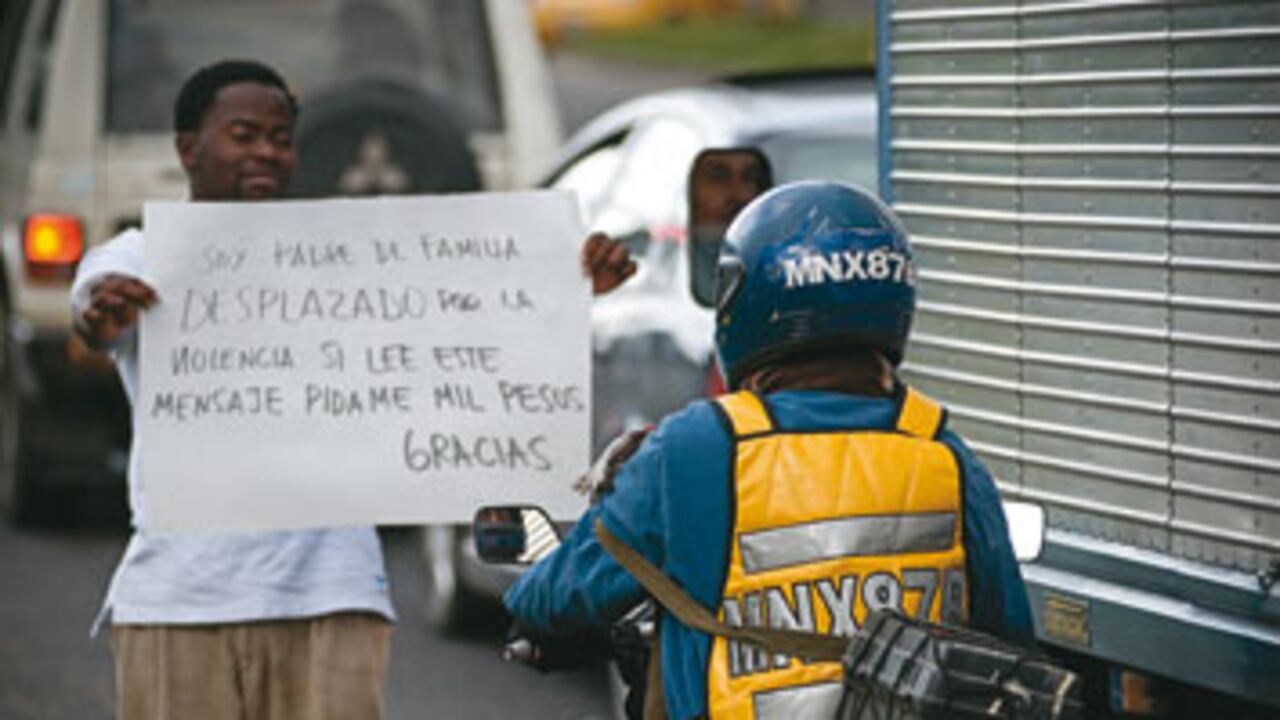 SOY PADRE DE FAMILIA
DESPLAZADO POR LA
VIOLENCIA SI LEE ESTE
MENSAJE PIDAME MIL PESOS
GRACIAS
MNX87
MNX87